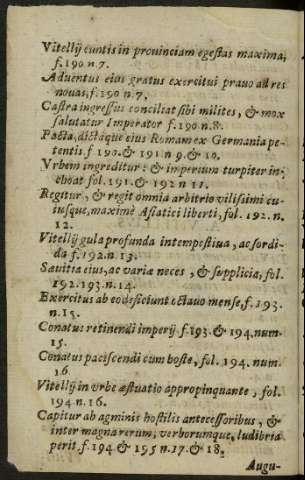 Vitellij euntis in prouinciam egestas maxima,
f.190 n.7.
Aduentus eius gratus exercitui prauo ad res
nouas, f.190 n.7.
Castra ingressus conciliat sibi milites, & mox
salutatur Imperator f.190 n.8.
Facta, dictaque eius Romam ex Germania pe-
tentis f 190. & 191 n 9. & 10.
Vrbem ingreditur: & imperium turpiter in-
choat fol. 191. & 192 n 11.
Regitur, & regit omnia arbitrio vilissimi cu-
iusque, maximè Asiatici liberti, fol. 192. n.
12.
Vitellij gula profunda intempestiua, ac sordi-
da f.192. n. 13.
Sæuitia eius, ac variæ neces, & supplicia, fol.
192.193.n.14.
Exercitus ab eo desciciunt octauo mense, f.193.
n.15.
Conatus retinendi imperij f.193. & 194. num.
15.
Conatus paciscendi cum hoste, fol. 194. num.
16
Vitellij in vrbe æstuatio appropinquante, fol.
194 n.16.
Capitur ab agminis hostilis antecessoribus, &
inter magna rerum, verborumque, ludibria
perit f.194 & 195 n.17. & 18.
Augu-